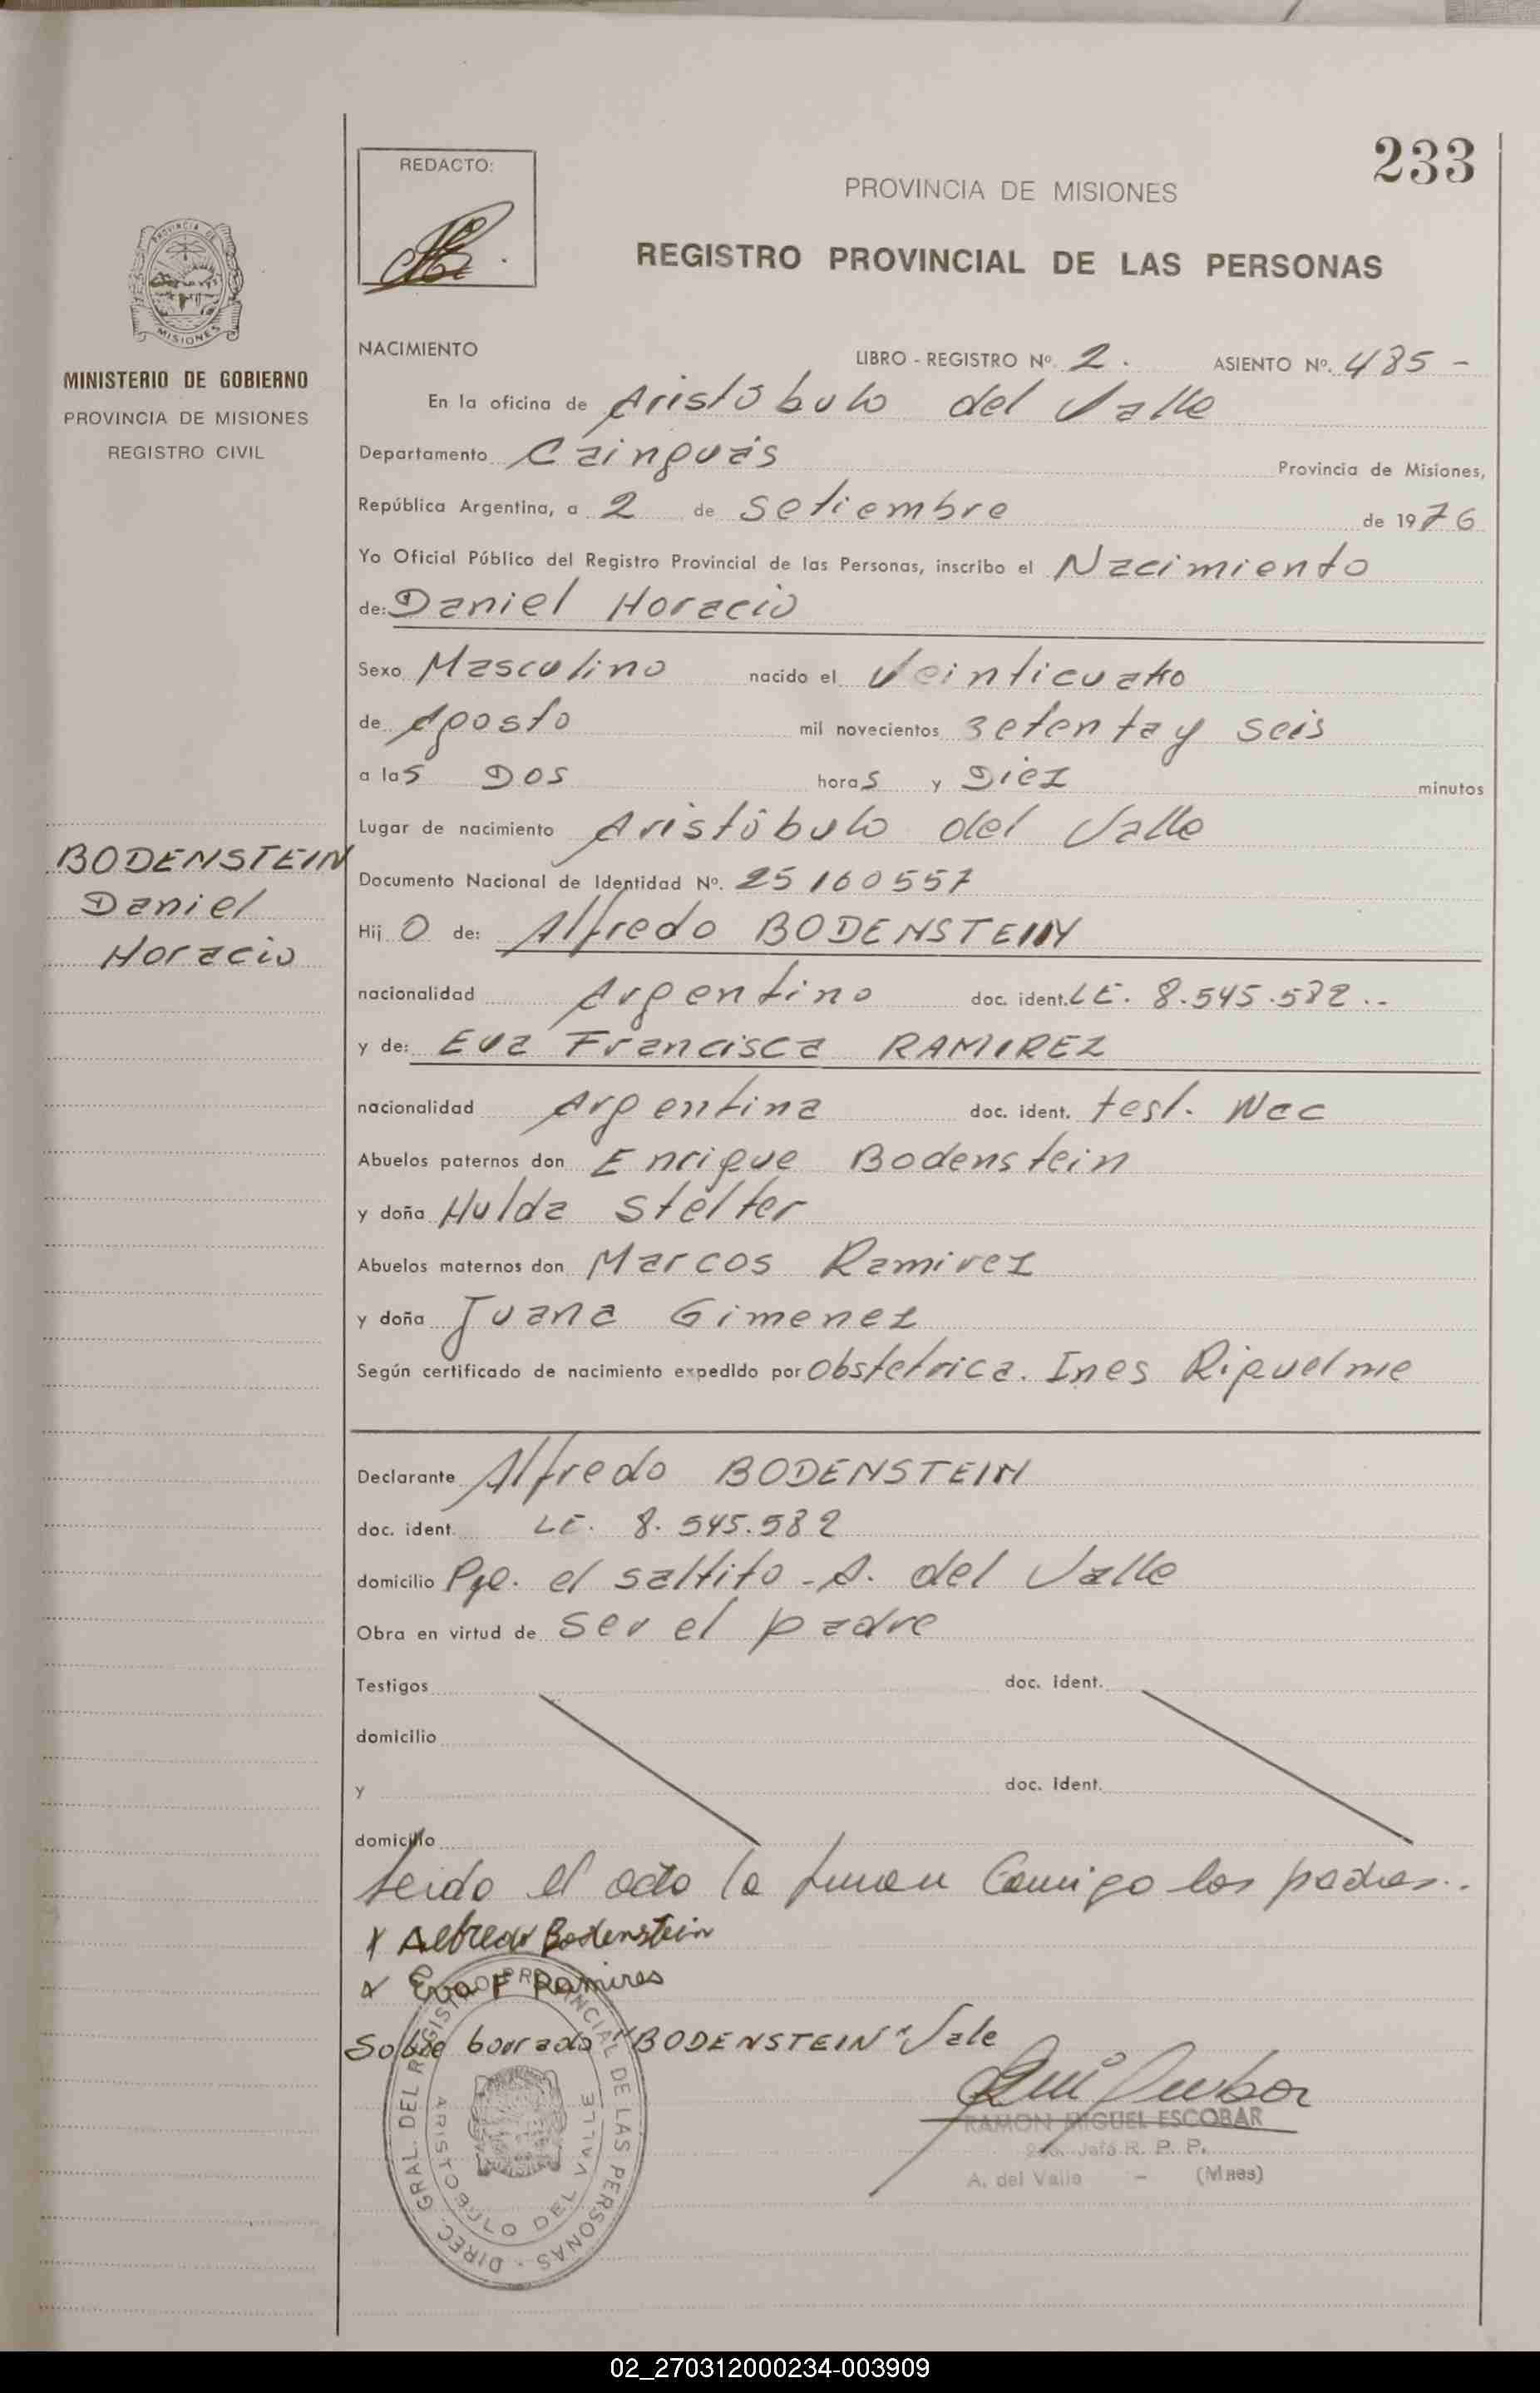 233
REDACTO:
PROVINCIA DE MISIONES
REGISTRO PROVINCIAL DE LAS PERSONAS
PROVINCIA DE
MISIONES
MINISTERIO DE GOBIERNO
PROVINCIA DE MISIONES
REGISTRO CIVIL
NACIMIENTO LIBRO - REGISTRO Nº. 2. ASIENTO Nº. 485 -
En la oficina de Aristóbulo del Valle
Departamento Cainguás Provincia de Misiones,
República Argentina, a 2 de Setiembre de 1976
Yo Oficial Público del Registro Provincial de las Personas, inscribo el Nacimiento
de: Daniel Horacio
Sexo Masculino nacido el Veinticuatro
de Agosto mil novecientos setenta y seis
a las Dos horas y Diez minutos
Lugar de nacimiento Aristóbulo del Valle
BODENSTEIN
Daniel
Horacio
Documento Nacional de Identidad Nº. 25 160557
Hij O de: Alfredo BODENSTEIN
nacionalidad Argentino doc. ident. LE. 8.545.582..
y de: Eva Francisca RAMIREZ
nacionalidad Argentina doc. ident. test. Nac
Abuelos paternos don Enrique Bodenstein
y doña Hulda Stelter
Abuelos maternos don Marcos Ramirez
y doña Juana Gimenez
Según certificado de nacimiento expedido por Obstetrica. Ines Riquelme
Declarante Alfredo BODENSTEIN
doc. ident. LE. 8.545.582
domicilio Pje. el saltito - A. del Valle
Obra en virtud de ser el padre
Testigos doc. ident.
domicilio
y doc. ident.
domicilio
Leido el acta la firman Conmigo los padres..
x Alfredo Bodenstein
x Eva F Ramires
Sobre borrado "BODENSTEIN" Vale
DIREC. GRAL. DEL REGISTRO PROVINCIAL DE LAS PERSONAS
ARISTOBULO DEL VALLE
RAMON MIGUEL ESCOBAR
Jefe R. P. P.
A. del Valle - (Mnes)
02_270312000234-003909